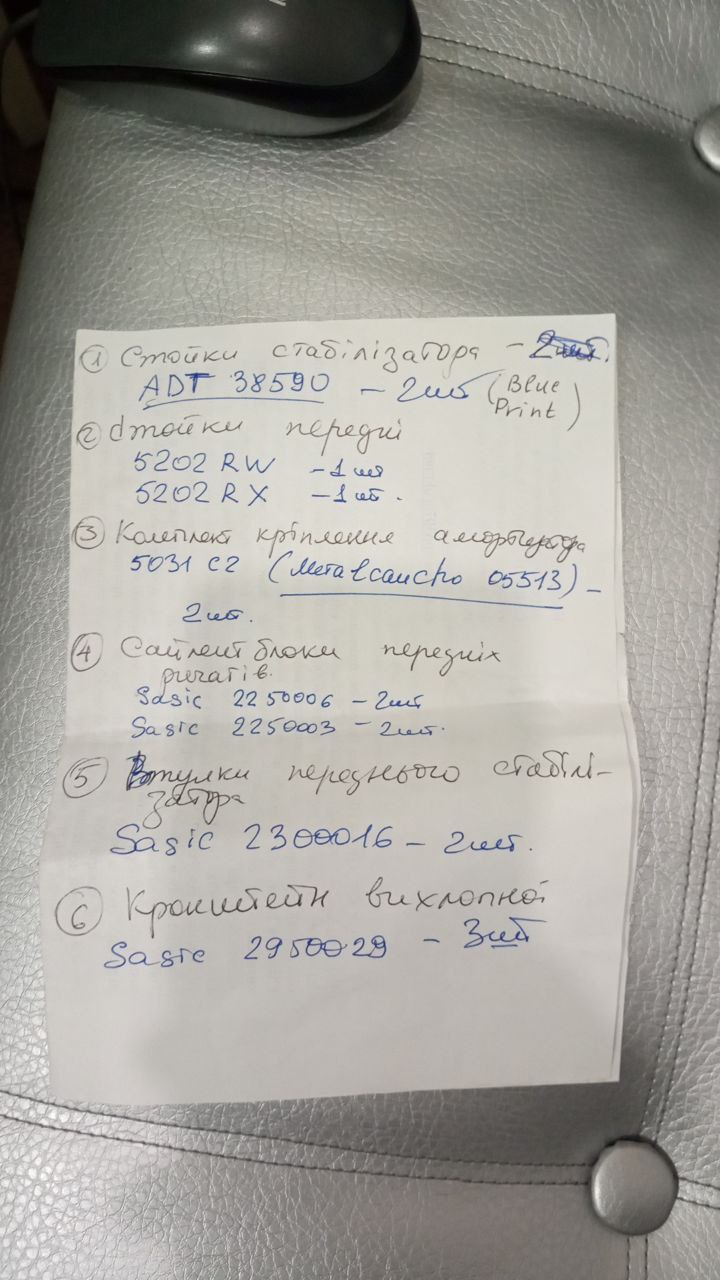 ① Стойки стабілізатора - 2шт.
ADT 38590 - 2шт (Blue Print)
② Стойки передні
5202 RW - 1 шт
5202 RX - 1 шт.
③ Комплект кріплення амортизатора
5031 C2 (Metalcaucho 05513) -
2шт.
④ Сайлентблоки передніх
ричагів.
Sasic 2250006 - 2шт
Sasic 2250003 - 2шт.
⑤ Втулки переднього стабілі-
затора
Sasic 2300016 - 2шт.
⑥ Кронштейн вихлопної
Sasic 2950029 - 3шт